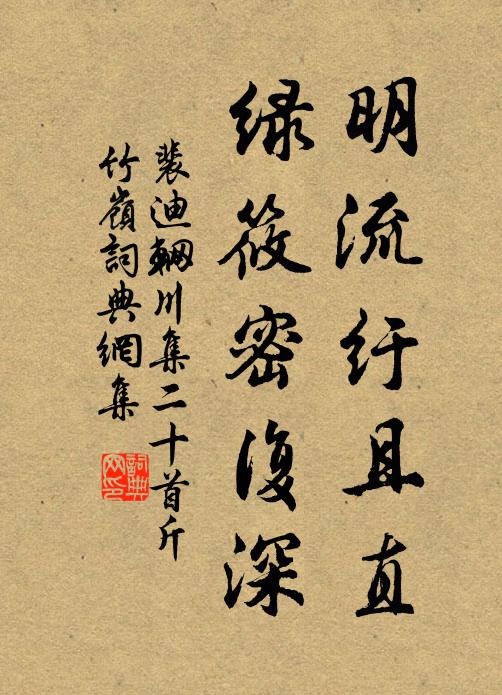 明流纡且直
绿筱密復深
裴迪輞川集二十首斤
竹嶺詞典網集
詞典
网印